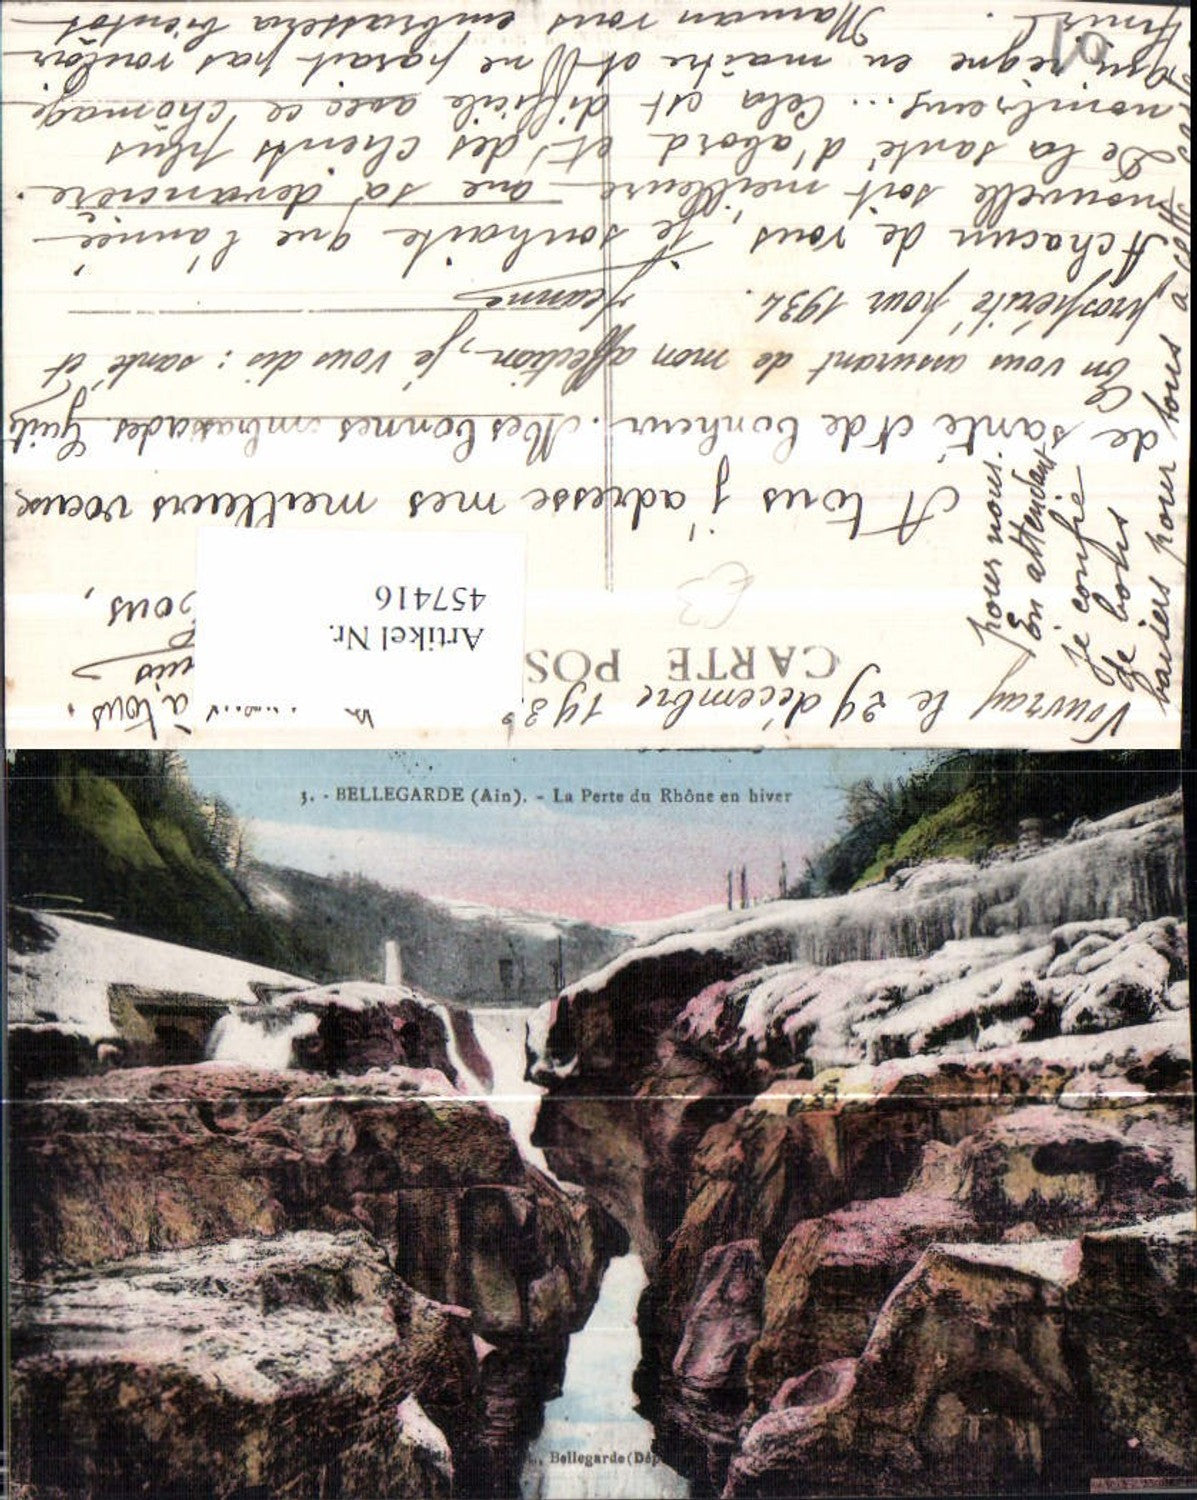 Vouvray le 29 décembre 193
à tous.
CARTE POS
Artikel Nr.
457416
A tous j'adresse mes meilleurs voeux
de santé et de bonheur. Mes bonnes embrassades.
En vous assurant de mon affection, je vous dis : santé et
prospérité pour 1934. Jeanne
A chacun de vous, je souhaite que l'année
nouvelle soit meilleure que sa devancière.
De la santé d'abord et des clients plus
nombreux... Cela est difficile avec ce chômage
qui règne en maître et ne parait pas vouloir
finir. Maman vous embrassera bientôt
pour nous.
En attendant
je confie
de bons
baisers pour tous à
3. - BELLEGARDE (Ain). - La Perte du Rhône en hiver
Bellegarde (Dép